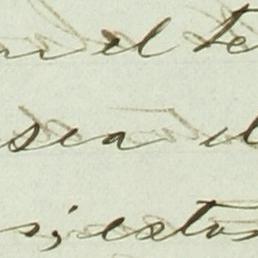 el te
sea el
s; estos